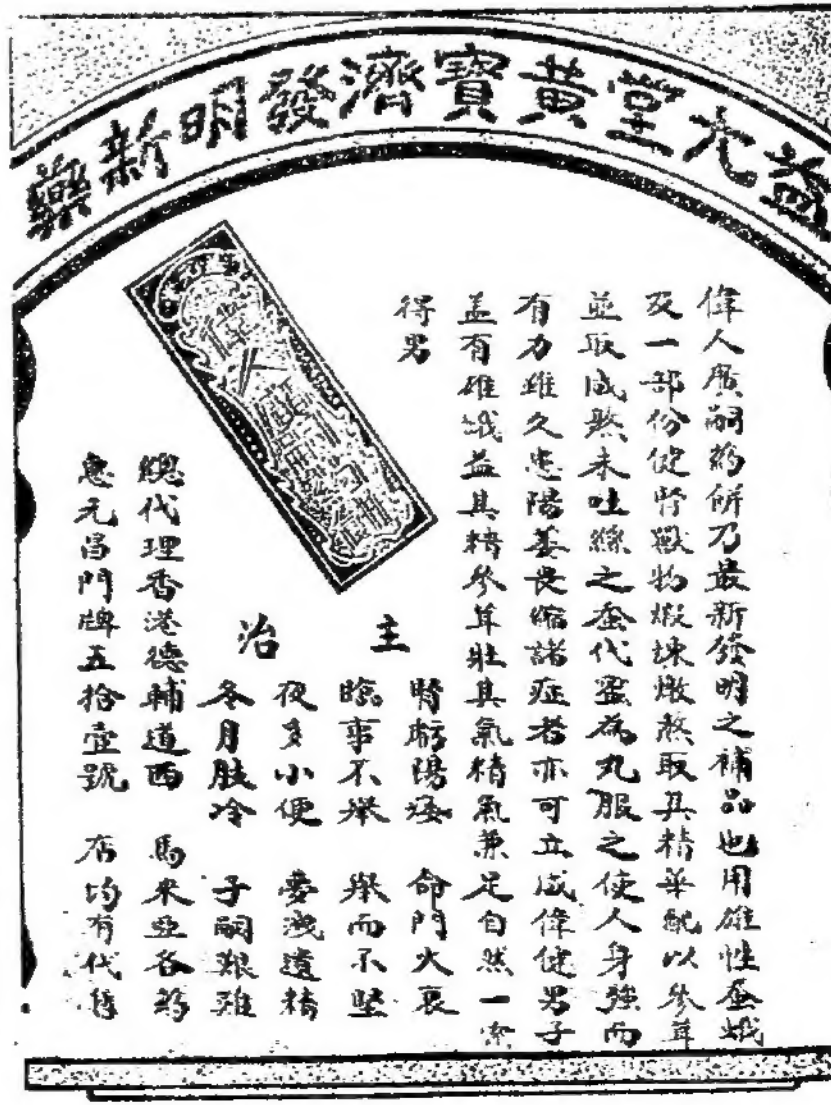 益元堂黃寶濟發明新藥
偉人廣嗣葯餅乃最新發明之補品也用雄性蚕蛾
及一部份健腎獸物煅煉燉熬取其精華配以參茸
並取成熟未吐絲之蚕代蜜為丸服之使人身強而
有力雖久患陽萎畏縮諸症者亦可立成偉健男子
盖有雄蛾益其精參茸壯其氣精氣兼足自然一索
得男
偉人廣嗣葯餅
主治
腎虧陽痿 命門火衰
臨事不舉 舉而不堅
夜多小便 夢洩遺精
冬月肢冷 子嗣艱難
總代理香港德輔道西 馬來亞各葯
惠元昌門牌五拾壹號 店均有代售